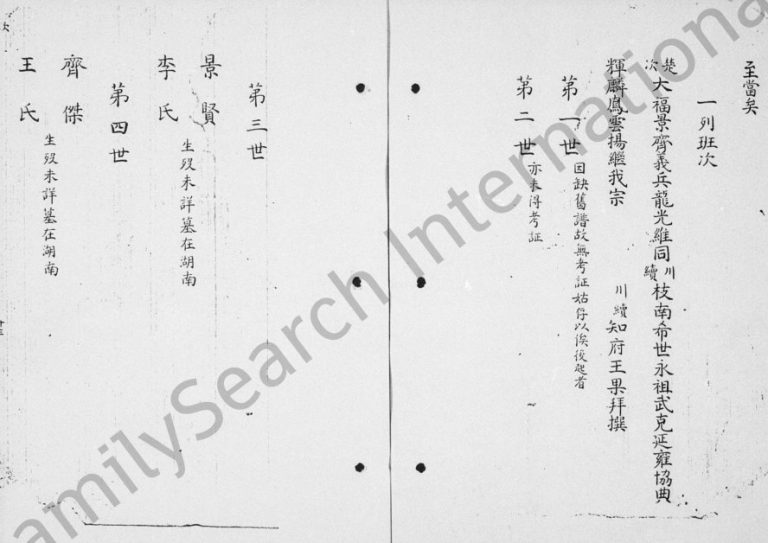 至當矣
一列班次
楚次 大福景齊義兵龍光維同 川續 枝南希世永祖武克延雍協典
輝麟鳳雲揚繼我宗 川續 知府王果拜撰
第一世 因缺舊譜故無考証姑存以俟後起者
第二世 亦未得考証
第三世
景賢
李氏 生歿未詳墓在湖南
第四世
齊傑
王氏 生歿未詳墓在湖南
FamilySearch International